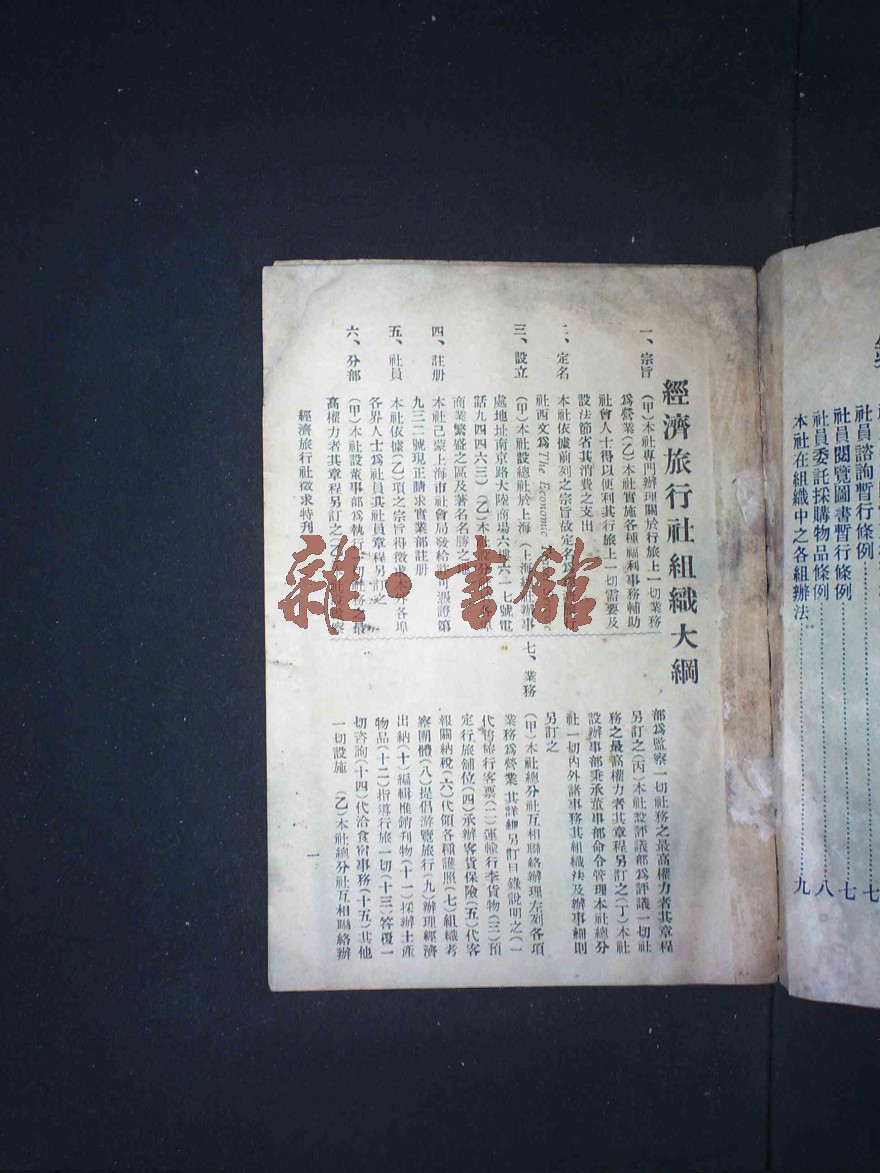 經濟旅行社組織大綱
一、宗旨
(甲)本社專門辦理關於行旅上一切業務
為營業(乙)本社實施各種福利事務輔助
社會人士得以便利其行旅上一切需要及
設法節省其消費之支出
二、定名
本社依據前列之宗旨故定名為
社西文為The Economic
三、設立
(甲)本社設總社於上海(上海 辦事
處地址南京路大陸商場六樓六一七號電
話九四四六三)(乙)本
商業繁盛之區及著名名勝之
四、註册
本社已蒙上海市社會局發給許可憑證第
九三二號現正請求實業部註册
五、社員
本社依據(乙)項之宗旨得徵求本外各埠
各界人士為社員其社員章程另訂之
六、分部
(甲)本社設董事部為執行一切社務之最
高權力者其章程另訂之(乙)
部為監察一切社務之最高權力者其章程
另訂之(丙)本社設評議部為評議一切社
務之最高權力者其章程另訂之(丁)本社
設辦事部秉承董事部命令管理本社總分
社一切內外諸事務其組織法及辦事細則
另訂之
七、業務
(甲)本社總分社互相聯絡辦理左列各項
業務為營業 其詳細另訂目錄說明之(一)
代售旅行客票(二)運輸行李貨物(三)預
定行旅舖位(四)承辦客貨保險(五)代客
報關納稅(六)代領各種護照(七)組織考
察團體(八)提倡游覽旅行(九)辦理經濟
出納(十)編輯推銷刊物(十一)採辦土產
物品(十二)指導行旅一切(十三)答覆一
切咨詢(十四)代洽食宿事務(十五)其他
一切設施 (乙)本社總分社互相聯絡辦
經濟旅行社徵求特刊
一
社員諮詢暫行條例
七
社員閱覽圖書暫行條例
七
社員委託採購物品條例
八
本社在組織中之各組辦法
九
雜·書館